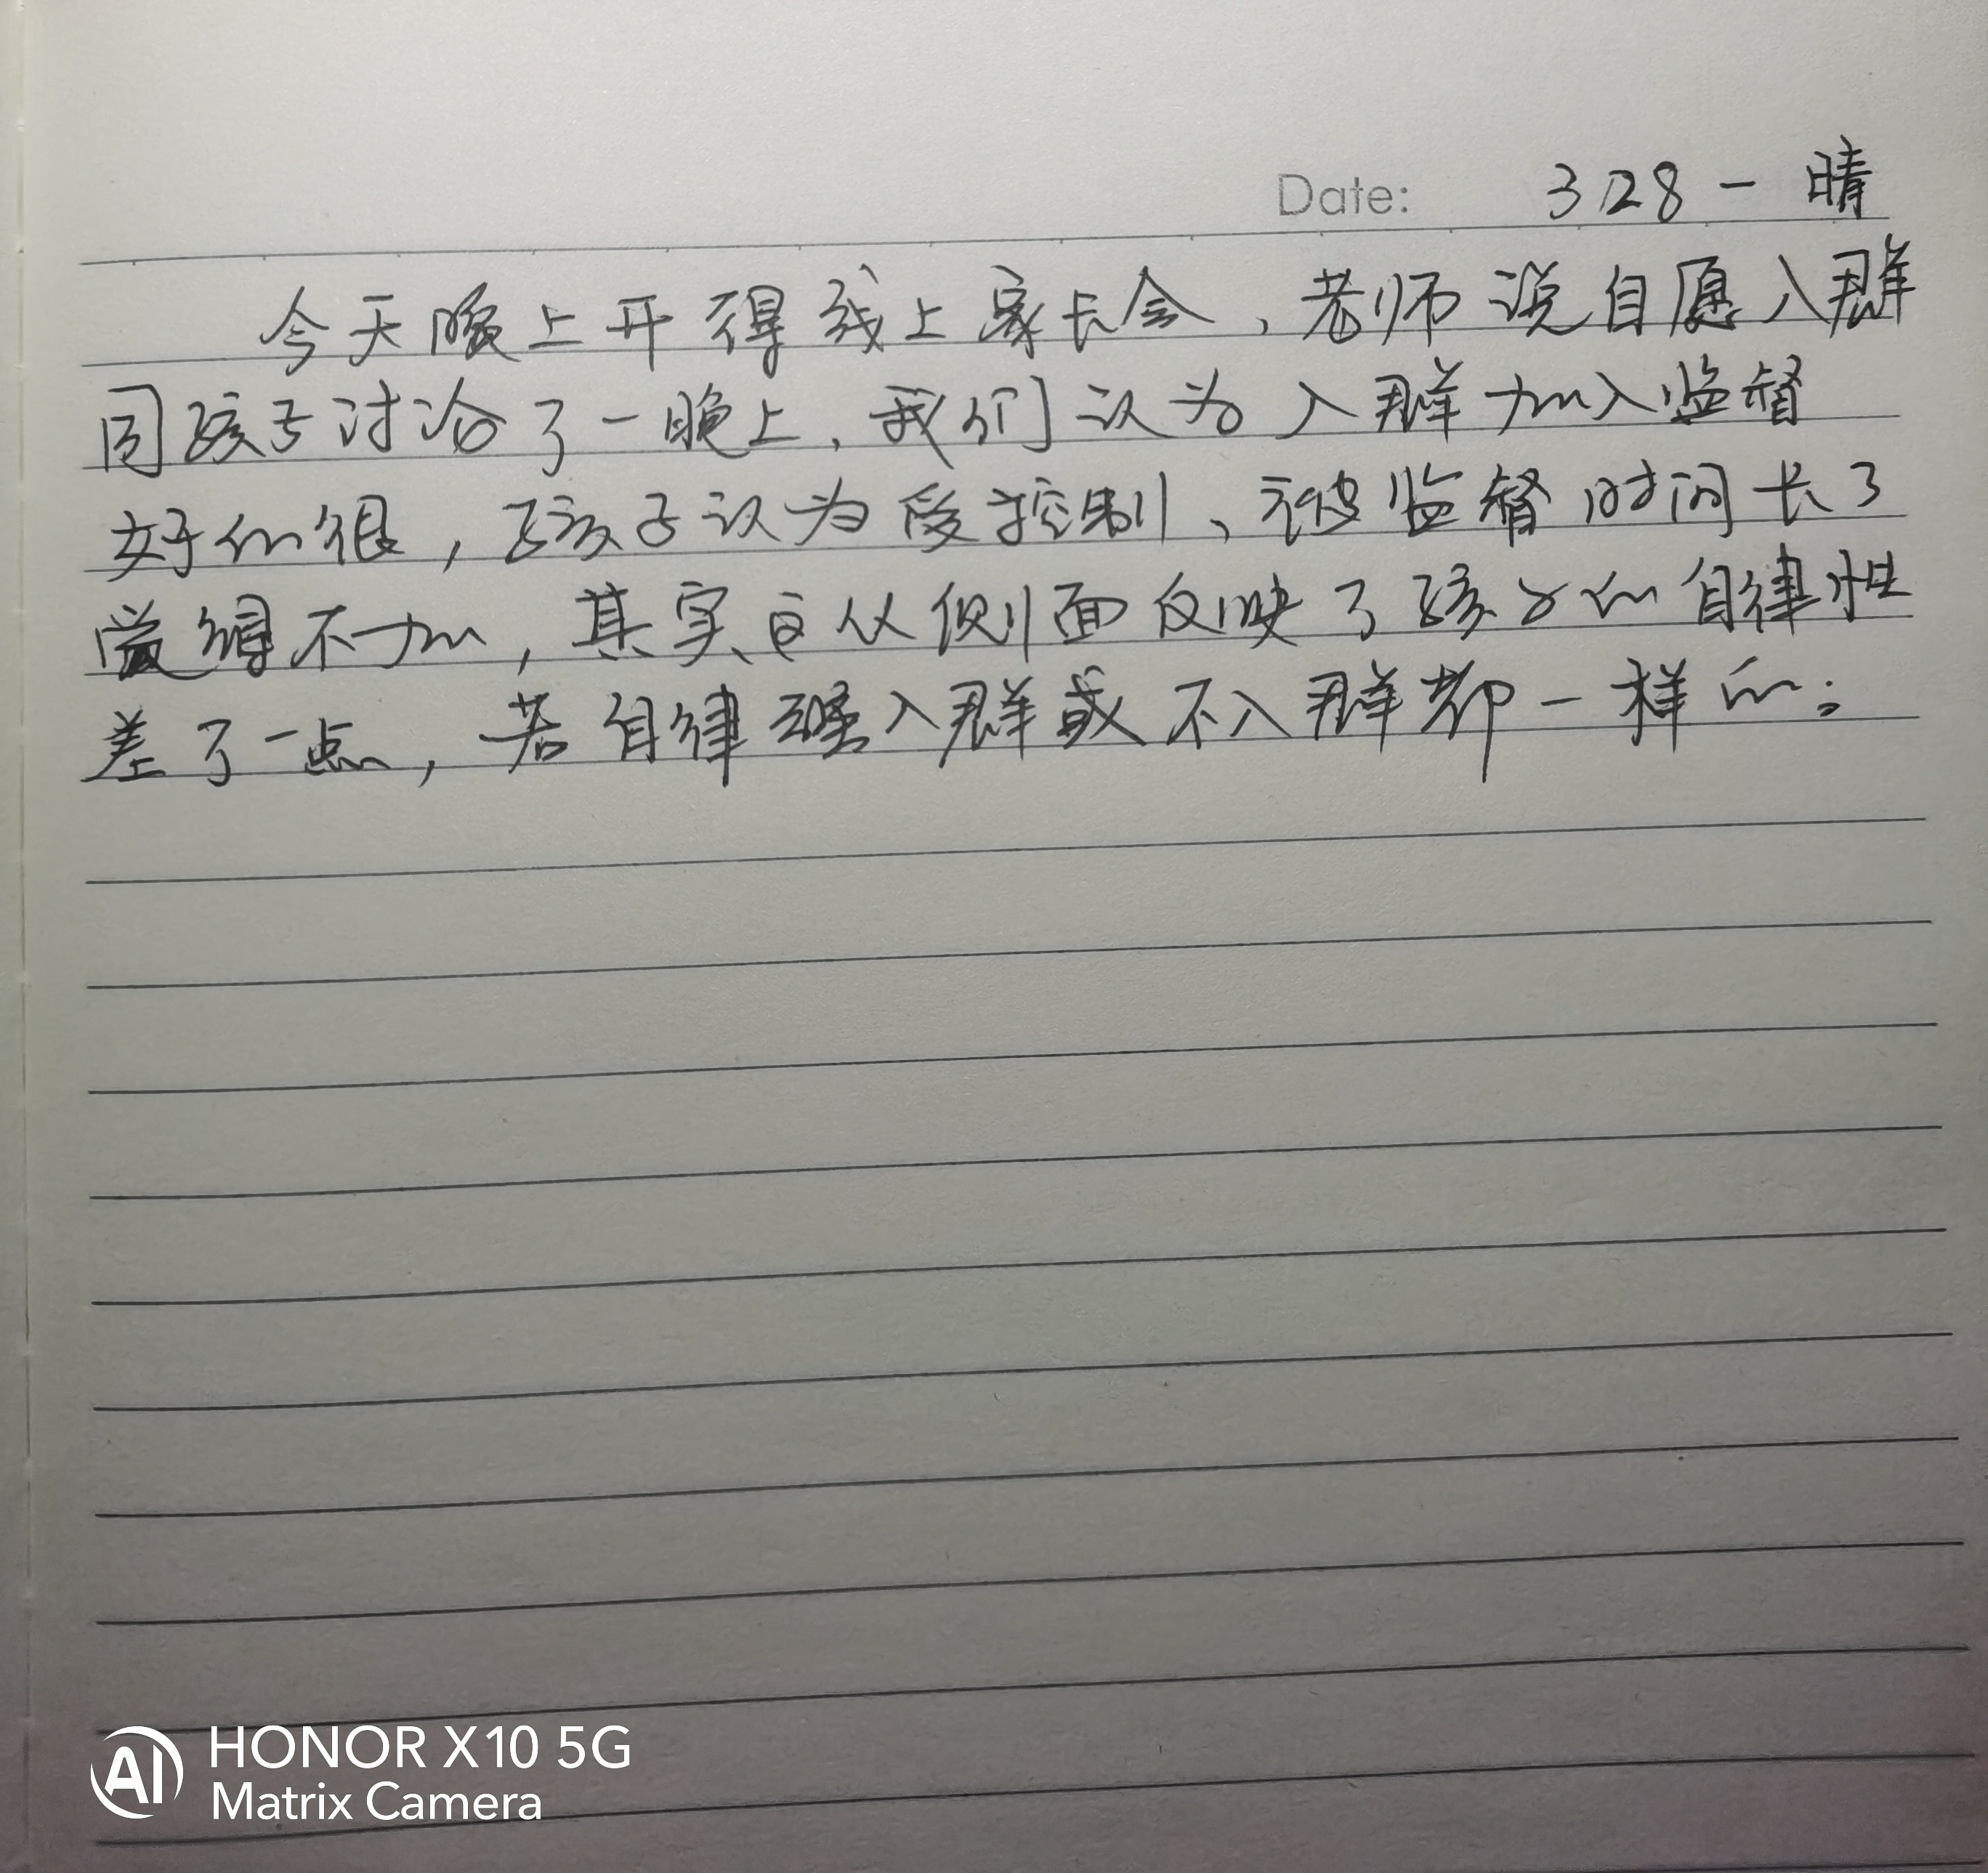 Date: 328 - 晴
今天晚上开得线上家长会、老师说自愿入群
同孩子讨论了一晚上，我们认为入群加入监督
好的很，孩子认为受控制、被监督时间长了
觉得不加，其实这从侧面反映了孩子的自律性
差了一点，若自律强入群或不入群都一样的；
AI HONOR X10 5G
Matrix Camera